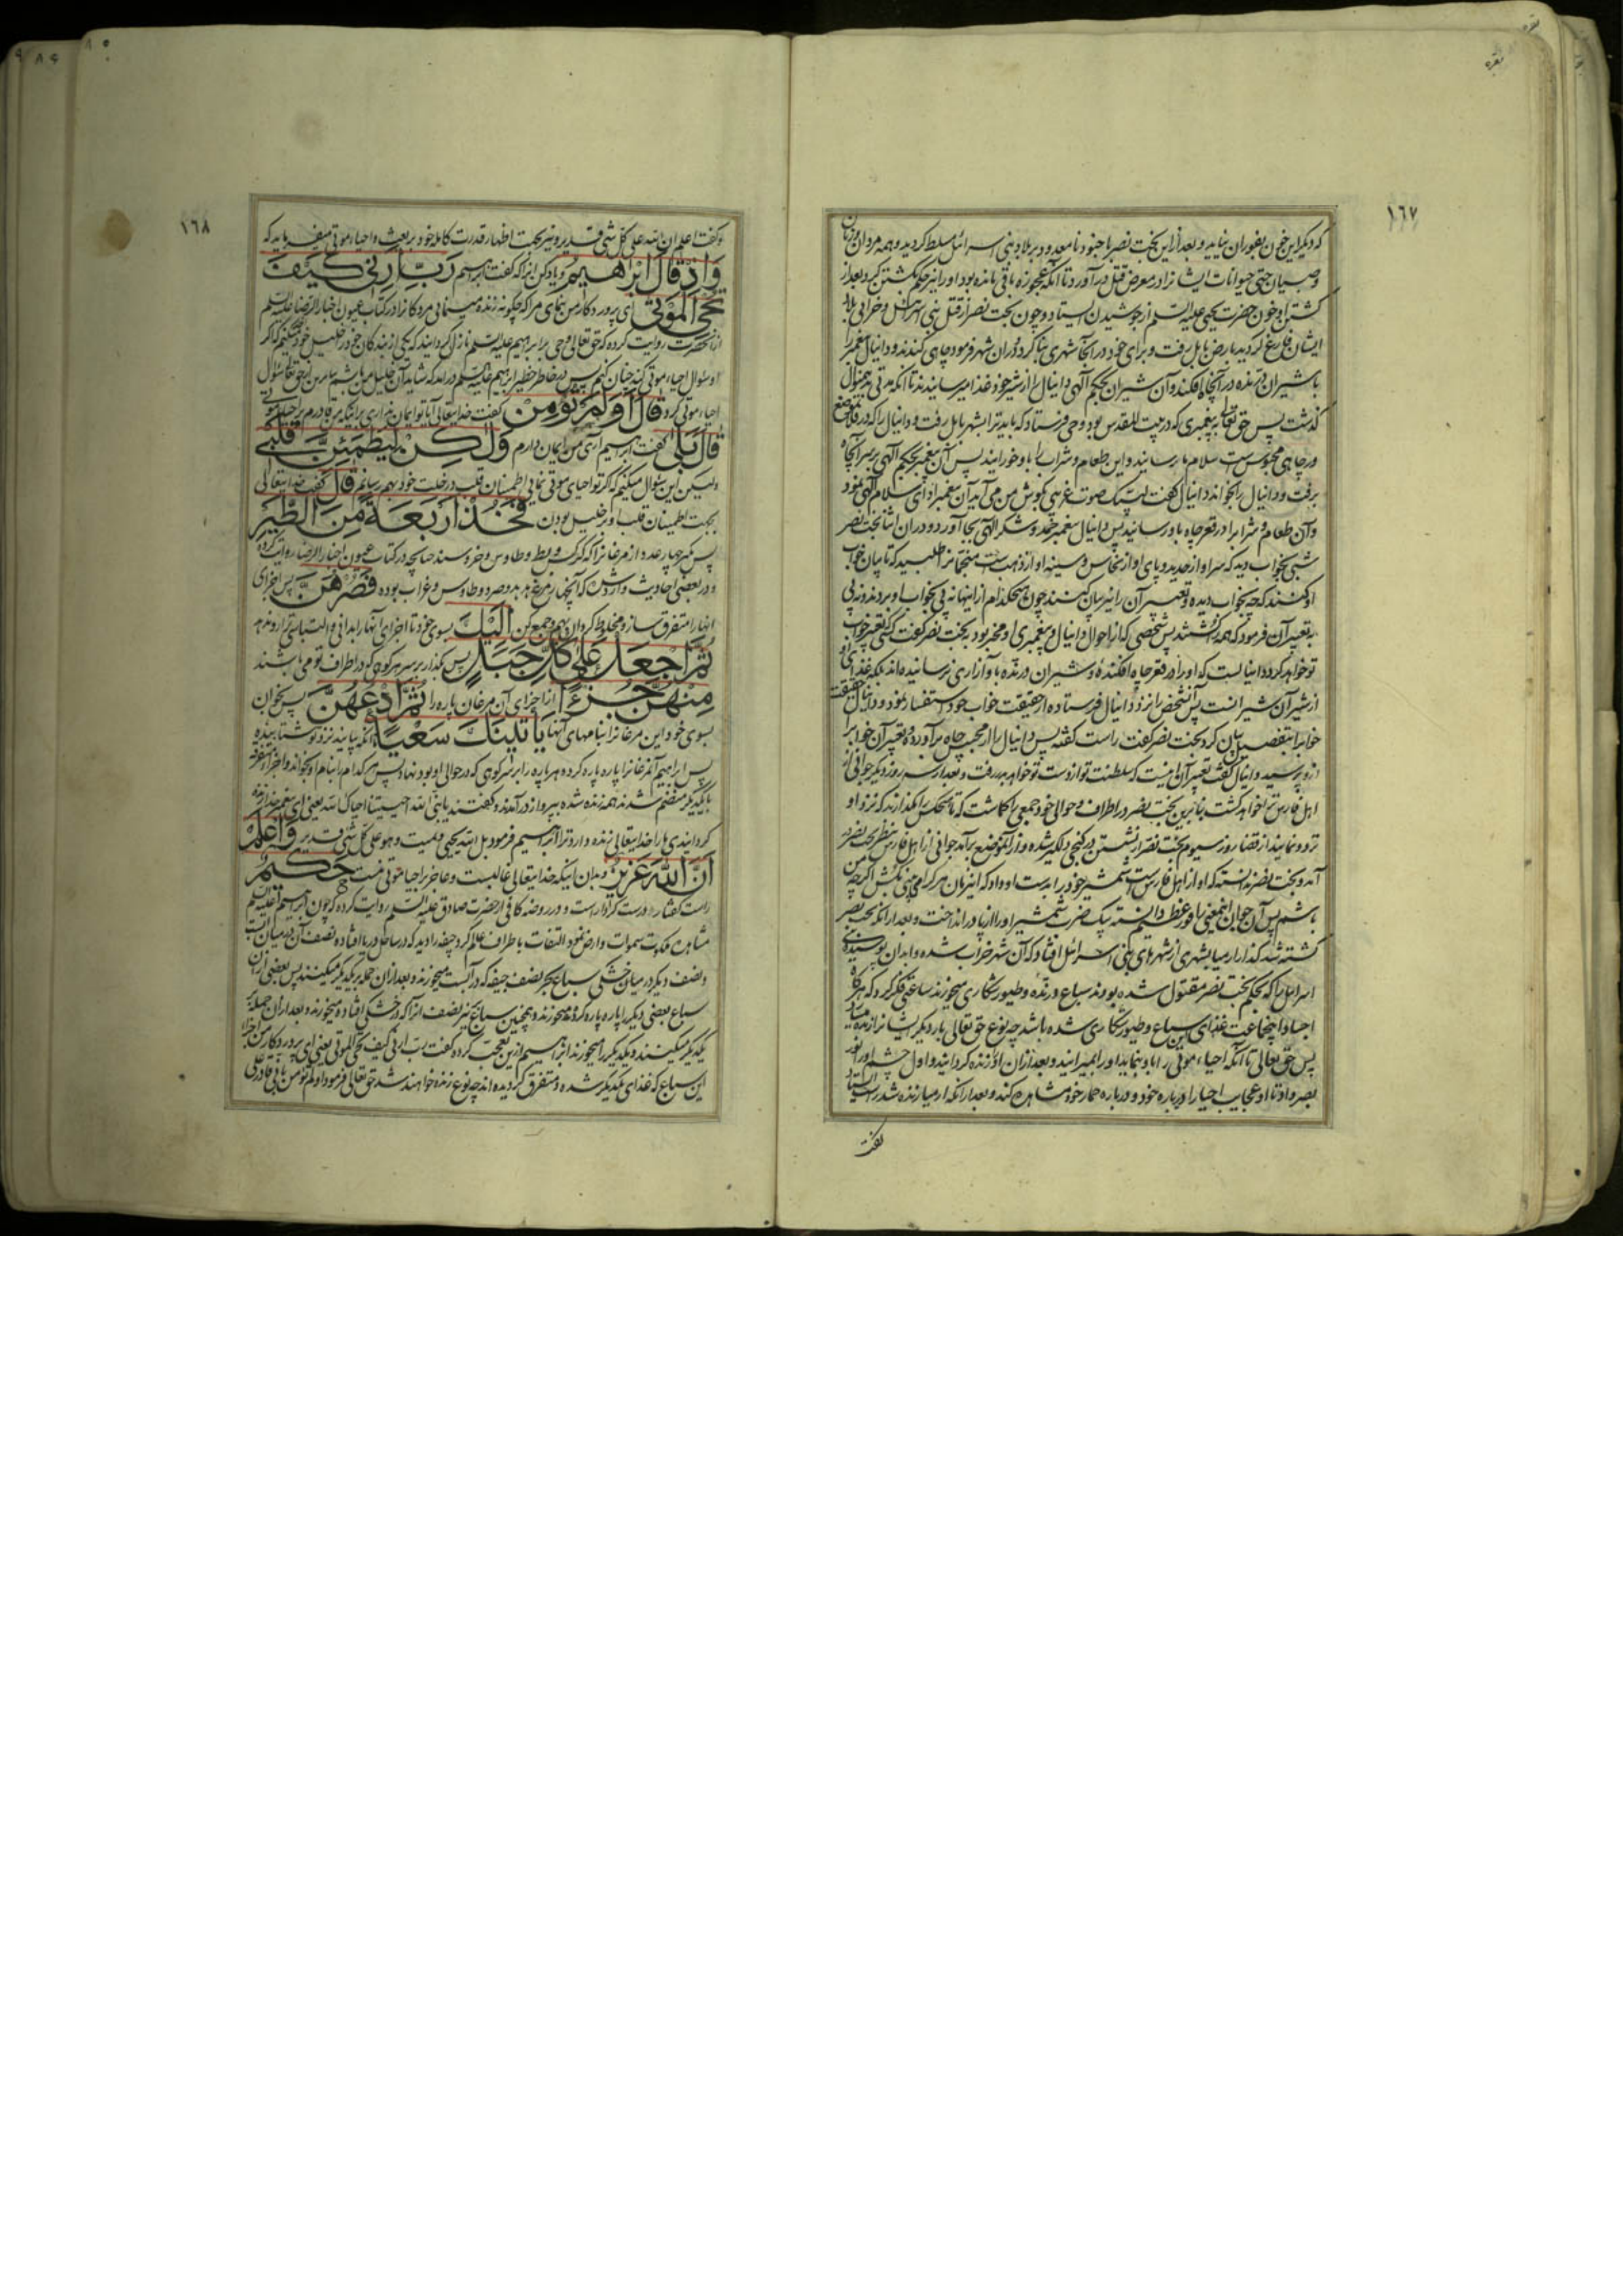 بقره
۱۶۷
که دیگر این خون بفوران نیاید و بعد از این بخت نصر با جنود نامعدود بر بلاد بنی اسرائیل مسلط کردید و همه مردان و زنان
و صبیان حتی حیوانات ایشانرا در معرض قتل در آورد تا آنکه عجوزه باقی مانده بود او را نیز حکم بکشتن کرد بعد از
کشتن او خون حضرت یحیی علیه السلم از جوشیدن ایستاد و چون بخت نصر از قتل بنی اسرائیل و خرابی بلاد
ایشان فارغ کردید بارض بابل رفت و برای خود در آنجا شهری بنا کرد و در ان شهر فرمود چاهی کندند و دانیال پیغمبر را
با شیران درنده در آنچاه افکند و آن شیران بحکم آلهی دانیال را از شیر خود غذا میرسانیدند تا آنکه مدتی بدینمنوال
کذشت پس حق تعالی به پیغمبری که در بیت المقدس بود وحی فرستاد که باید ترا بشهر بابل رفت و دانیال را که در فلان موضع
در چاهی محبوس است سلام ما رسانید و این طعام و شراب را باو خورانید پس آن پیغمبر بحکم آلهی بر سر آنچاه
برفت و دانیال را بخواند دانیال کفت لبیک صوت غریبی بکوش من می آید آن پیغمبر ادای سلام آلهی نمود
و آن طعام و شراب را در قعر چاه باو رسانید پس دانیال پیغمبر حمد و شکر آلهی بجا آورد و در ان اثنا بخت نصر
شبی بخواب دید که سر او از حدید و پای او از نحاس و سینه او از ذهب است منجمانرا طلبید که تا بیان خواب
او کنند که چه بخواب دیده و تعبیر آن را نیز بیان کنند چون هیچکدام از اینها نه پی بخواب او بردند و نه پی
به تعبیر آن فرمود که همه را کشتند پس شخصی که از احوال دانیال و پیغمبری او مخبر بود ببخت نصر کفت کسی تعبیر خواب
تو خواهد کرد دانیالست که او را در قعر چاه افکنده و شیران درنده باو آزاری نرسانیده اند بلکه غذای او
از شیر آن شیرانست پس آنشخص را نزد دانیال فرستاده از حقیقت خواب خود استفسار نمود و دانیال حقیقت
خواب را بتفصیل بیان کرد بخت نصر کفت راست کفته پس دانیال را از محبس چاه برآورده و تعبیر آن خواب را
ازو پرسید دانیال کفت تعبیر آن اینست که سلطنت تو از دست تو خواهد رفت و بعد از سه روز دیکر جوانی از
اهل فارس ترا خواهد کشت بنا برین بخت نصر در اطراف و حوالی خود جمعی را کماشت که تا هیچکس را نکذارند که نزد او
تردد نمایند از قضا روز سیوم بخت نصر از نشستن در کنجی دلکیر شده و از آنموضع برآمد جوانی از اهل فارس بنظر بخت نصر در
آمد و بخت نصر ندانسته که او از اهل فارس است شمشیر خود را بدست او داد که اینزمان هر کرا می بینی بکش اکرچه من
باشم پس آن جوان اینمعنی را فوز عظیم دانسته بیک ضرب شمشیر او را از پا در انداخت و بعد از آنکه بخت نصر
کشته شد کذار ارمیا بشهری از شهرهای بنی اسرائیل افتاد که آن شهر خراب شده و ابدان پوسیده بنی
اسرائیل را که بحکم بخت نصر مقتول شده بودند سباع درنده و طیور شکاری میخورند ساعتی فکر کرد که هر کاه
اجساد اینجماعت غذای این سباع و طیور شکاری شده باشد چه نوع حق تعالی بار دیکر ایشانرا زنده میسازد
پس حق تعالی تا آنکه احیاء موتی را باو بنماید او را بمیرانید و بعد از ان او را زنده کردانید و اول چشم او را نور
بصر داد تا او عجایب احیا را درباره خود و درباره حمار خود مشاهده کند و بعد از آنکه ارمیا زنده شد راست ایستاد
بکفت
۱۶۸
و کفت اعلم ان الله علی کل شی قدیر و نیز بجهت اظهار قدرت کامله خود بر بعث و احیاء موتی میفرماید که
وَاِذْ قَالَ اِبْرَاهِیمُ و یاد کن آنرا که کفت ابراهیم رَبِّ اَرِنِی کَیْفَ
تُحْیِ الْمَوْتٰی ای پرورد کار من بنمای مرا که چکونه زنده مینمائی مردکانرا در کتاب عیون اخبار الرضا علیه السلم
از آنحضرت روایت کرده که حق تعالی وحی بر ابراهیم علیه السلم نازل کردانید که یکی از بندکان خود را خلیل خود میکنم که اکر
او سئوال احیاء موتی کند چنان کنم پس در خاطر خطیر ابراهیم علیه السلم درآمد که شاید آن خلیل من باشم بنابرین از حق تعالی سئوال
احیاء موتی کرد قَالَ اَوَلَمْ تُؤْمِنْ کفت خدایتعالی آیا تو ایمان نداری برآنکه من قادرم بر احیاء موتی
قَالَ بَلٰی کفت ابراهیم آری من ایمان دارم وَلٰکِنْ لِیَطْمَئِنَّ قَلْبِی
ولیکن این سئوال میکنم که اکر تو احیای موتی نمائی اطمینان قلب در خلت خود بهم رسانم قَالَ کفت خدایتعالی
بجهت اطمینان قلب او بر خلیل بودن فَخُذْ اَرْبَعَةً مِنَ الطَّیْرِ
پس بگیر چهار عدد از مرغانرا که کرکس و بط و طاوس و خروسند چنانچه در کتاب عیون اخبار الرضا روایت کرده
و در بعضی احادیث وارد شده که آنچهار مرغ هدهد و صرد و طاوس و غراب بوده فَصُرْهُنَّ پس اجزای
اینها را متفرق ساز و مخلوط کردان بهم و جمع کن اِلَیْکَ بسوی خود تا اجزای آنها را بدانی و التباسی ترا رو ندهد
ثُمَّ اجْعَلْ عَلٰی کُلِّ جَبَلٍ پس بکذار بر سر هر کوهی که در اطراف تو می باشند
مِنْهُنَّ جُزْءًا از اجزای آن مرغان پاره را ثُمَّ ادْعُهُنَّ پس بخوان
بسوی خود این مرغانرا بنامهای آنها یَاْتِینَکَ سَعْیًا آنکه بیایند نزد تو شتابنده
پس ابراهیم آنمرغانرا پاره پاره کرده و هر پاره را بر سر کوهی که در حوالی او بود نهاد پس هر کدام را بنام او بخواند و اجزای متفرقه
بایکدیکر منضم شدند همه زنده شده بپرواز در آمدند و کفتند یا نبی الله احییتنا احیاک الله یعنی ای پیغمبر خدا زنده
کردانیدی ما را خدایتعالی زنده دارد ترا ابراهیم فرمود بل الله یحیی و یمیت و هو علی کل شی قدیر وَاعْلَمْ
اَنَّ اللهَ عَزِیزٌ و بدان اینکه خدایتعالی غالبست و عاجز بر احیا موتی نیست حَکِیمٌ
راست کفتار و درست کردار است و در روضه کافی از حضرت صادق علیه السلم روایت کرده که چون ابراهیم علیه السلم
مشاهده ملکوت سموات و ارض نمود التفات باطراف عالم کرد جیفه را دید که در ساحل دریا افتاده نصف آن در میان آبست
و نصف دیکر در میان خشکی سباع بحر نصف جیفه که در آبست میخورند و بعد از ان حمله بر یکدیکر میکنند پس بعضی از ان
سباع بعضی دیکر را پاره پاره کرده میخورند و همچنین سباع بر نیز نصف آنرا که در خشکی افتاده میخورند و بعد از ان حمله بر
یکدیکر میکنند و یکدیکر را میخورند ابراهیم ازین تعجب کرد و کفت رب ارنی کیف تحیی الموتی یعنی ای پروردکار من اجزاء
این سباع که غذای یکدیکر شده و متفرق کردیده اند چه نوع زنده خواهند شد حق تعالی فرمود اولم تؤمن یا نبی قادر علی